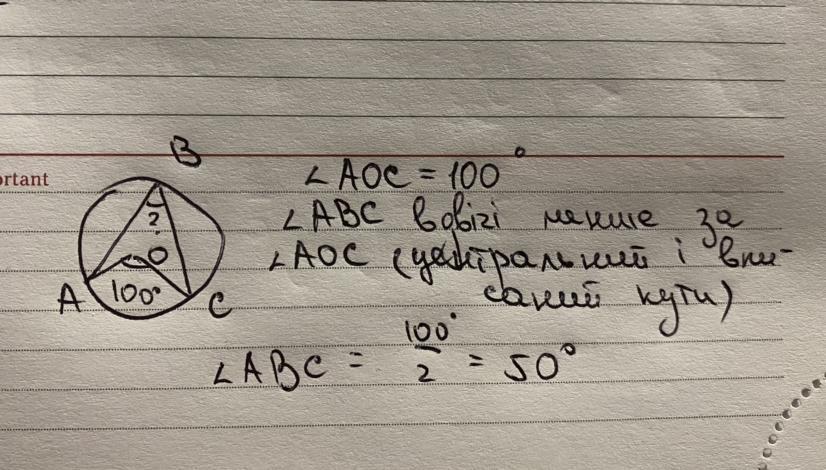 B
rtant
∠AOC = 100°
?
∠ABC вдвічі менше за
O
∠AOC (центральний і впи-
A 100° C
саний кути)
∠ABC = 100°/2 = 50°